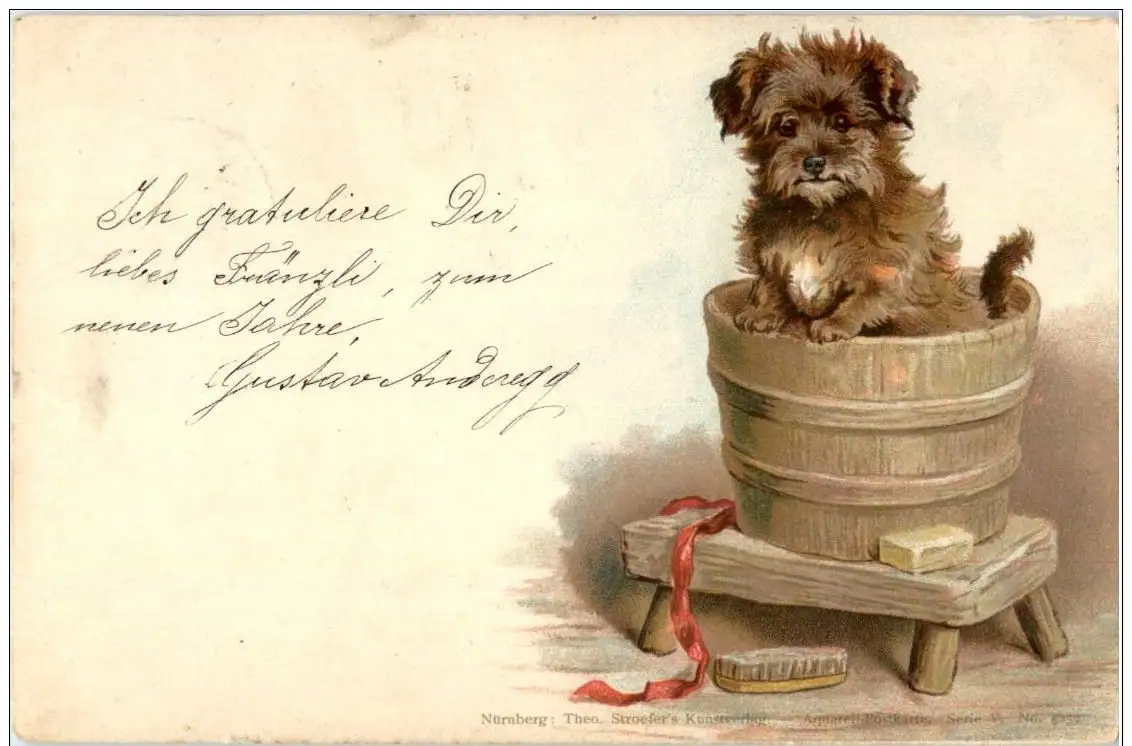 Ich gratuliere Dir,
liebes Fränzli, zum
neuen Jahre,
Gustav Anderegg
Nürnberg: Theo. Stroefer's Kunstverlag. Aquarell-Postkarte. Serie V. No.